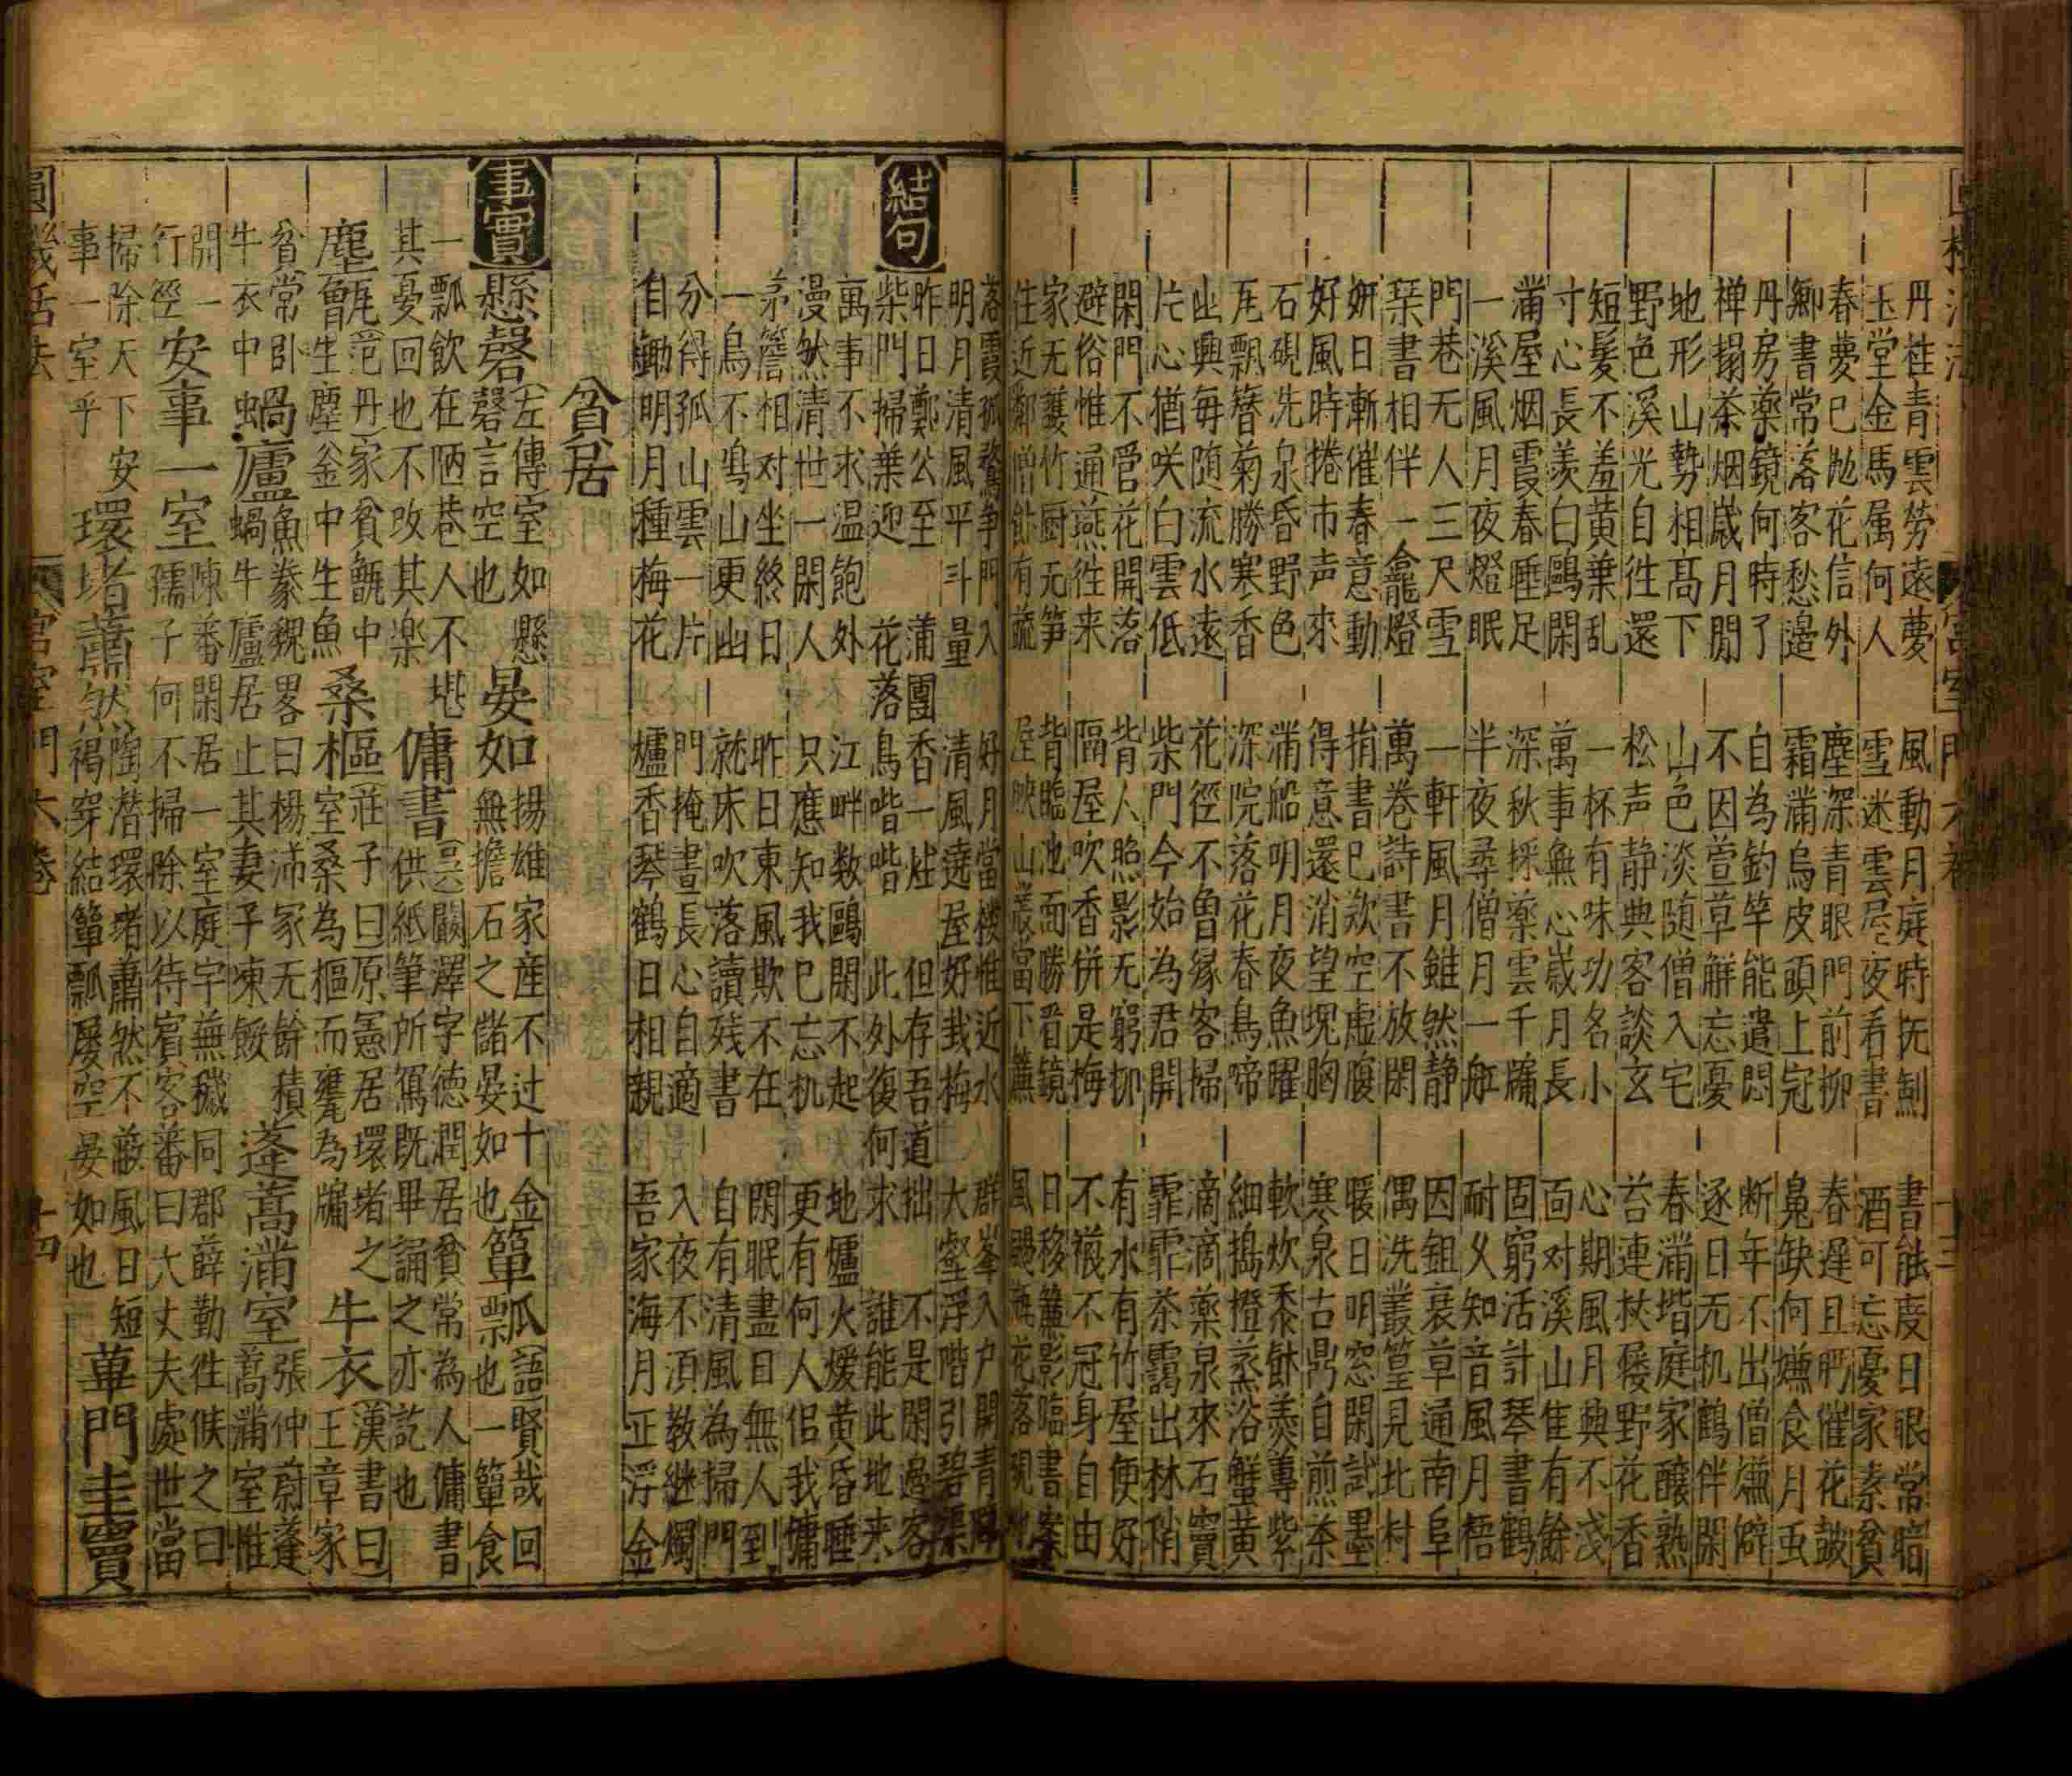 丹桂青雲勞遠夢 風動月庭時既刜 書能度日眼常暗
玉堂金馬属何人 雪迷雲屋夜看書 酒可忘憂家素貧
春夢已灺花信外 塵深青眼門前柳 春遲且肥催花皷
鄉書常落客愁邊 霜滿烏皮頭上冠 鬼缺何嫌食月䖝
丹房藥鏡何時了 自為釣竿能遣悶 断年不出僧嫌僻
禅榻茶烟歲月閒 不因萱草觧忘憂 逐日无机鶴伴閑
地形山勢相髙下 山色淡随僧入宅 春滿堦庭家釀熟
野色溪光自徃還 松声静典客談玄 苔連杖屦野花香
短髮不羞黄葉乱 一杯有味功名小 心期風月典不淺
寸心長羡白鷗閑 萬事無心歲月長 面对溪山隹有餘
滿屋烟霞春睡足 深秋採藥雲千牖 固窮活計琴書鶴
一溪風月夜燈眠 半夜尋僧月一舡 耐乆知音風月梧
門巷无人三尺雪 一軒風月雖然静 因鉏衰草通南阜
琹書相伴一龕燈 萬巻詩書不放閑 偶洗叢篁見北村
妍日漸催春意動 揹書已欵空虚腹 暖日明窓閑試墨
好風時捲市声來 得意還消望塊胸 寒泉古鼎自煎茶
石硯洗泉昏野色 滿船明月夜魚躍 軟炊黍餅羡蓴紫
瓦瓢簪菊勝寒香 深院落花春鳥啼 細搗橙蒸浴蟹黄
出興每随流水遠 花徑不曾縁客掃 滴滴藥泉來石竇
片心猶咲白雲低 柴門今始為君開 霏霏茶靄出林梢
閑門不管花開落 背人照影无窮柳 有水有竹屋便好
避俗惟通燕徃来 隔屋吹香併是梅 不襪不冠身自由
家无䕶竹厨无笋 背臨池面勝看鏡 日移簾影臨書案
住近鄰僧飯有蔬 屋映山叢當下簾 風颺瓶花落硯池
結句
落霞孤鶩争門入 好月當楼惟近水 群峯入户開青障
明月清風平斗量 清風遶屋好我梅 大壑浮階引碧渠
昨日鄭公至 蒲團香一炷 但存吾道拙 不是閑過客
柴門掃葉迎 花落鳥喈喈 此外復何求 誰能此地来
萬事不求温飽外 江畔数鷗閑不起 地爐火煖黄昏睡
漫然清世一閑人 只應知我已忘机 更有何人侣我慵
茅簷相对坐終日 昨日東風欺不在 閑眠盡日無人到
一鳥不鳴山更幽 就床吹落讀残書 自有清風為掃門
分得孤山雲一片 門掩晝長心自適 入夜不湏教継燭
自鋤明月種梅花 爐香琴鶴日相親 吾家海月正浮金
貧居
事實
懸磬 左傳室如懸磬言空也 晏如 揚雄家産不过十金無擔石之儲晏如也 簞瓢 語賢哉回也一簞食
一瓢飲在陋巷人不堪其憂回也不攺其樂 傭書 呉闞澤字徳潤居貧常為人傭書供紙筆所寫既畢誦之亦訖也
塵甑 范丹家貧甑中曽生塵釡中生魚 桑樞 莊子曰原憲居環堵之室桑為樞而甕為牖 牛衣 漢書曰王章家
貧常卧牛衣中 蝸廬 魚豢魏畧曰楊沛家无餘積蝸牛廬居止其妻子凍餒 蓬蒿滿室 張仲蔚蓬蒿滿室惟
開一行徑 安事一室 陳蕃閑居一室庭宇蕪穢同郡薛勤徃候之曰孺子何不掃除以待賔客蕃曰大丈夫處世當
掃除天下安事一室乎 環堵蕭然 陶潜環堵蕭然不蔽風日短褐穿結簞瓢屡空晏如也 蓽門圭竇
圓機活法 宫室門六巻 十四